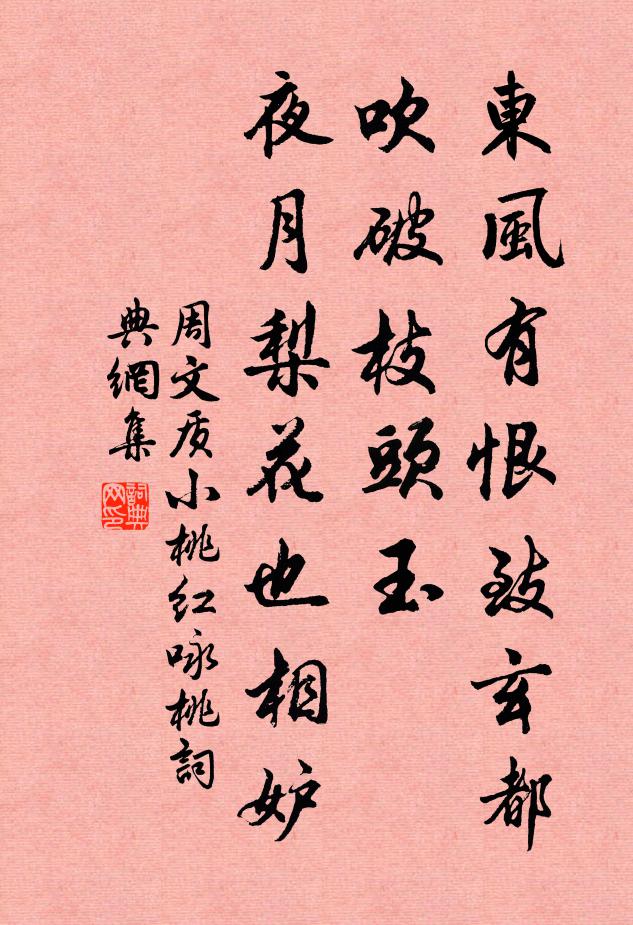 東風有恨致玄都
吹破枝頭玉
夜月梨花也相妒
周文质小桃红咏桃詞
典網集
詞典网印